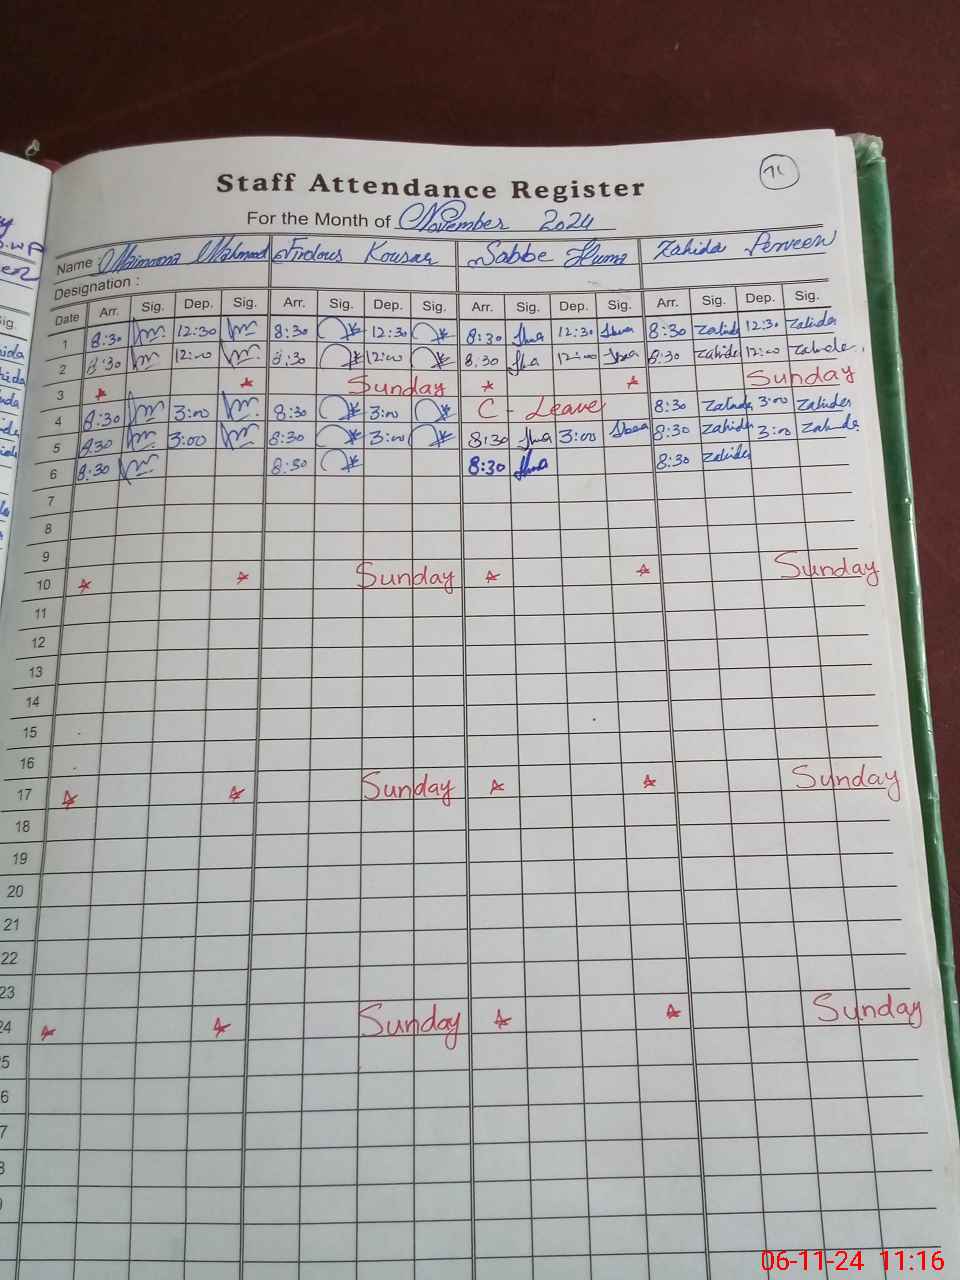 Staff Attendance Register
71
For the Month of November 2024
Name : Maimoona Mahmood Firdous Kousar Sabbe Huma Zahida Perveen
Designation :
Date Arr. Sig. Dep. Sig. Arr. Sig. Dep. Sig. Arr. Sig. Dep. Sig. Arr. Sig. Dep. Sig.
1 8:30 12:30 8:30 12:30 8:30 12:30 8:30 Zahida 12:30 Zahida
2 8:30 12:00 8:30 12:00 8:30 12:00 8:30 Zahida 12:00 Zahida
3 Sunday Sunday
4 8:30 3:00 8:30 3:00 C - Leave 8:30 Zahida 3:00 Zahida
5 8:30 3:00 8:30 3:00 8:30 3:00 8:30 Zahida 3:00 Zahida
6 8:30 8:30 8:30 8:30 Zahida
7
8
9
10 Sunday Sunday
11
12
13
14
15
16
17 Sunday Sunday
18
19
20
21
22
23
24 Sunday Sunday
5
6
7
8
9
06-11-24 11:16